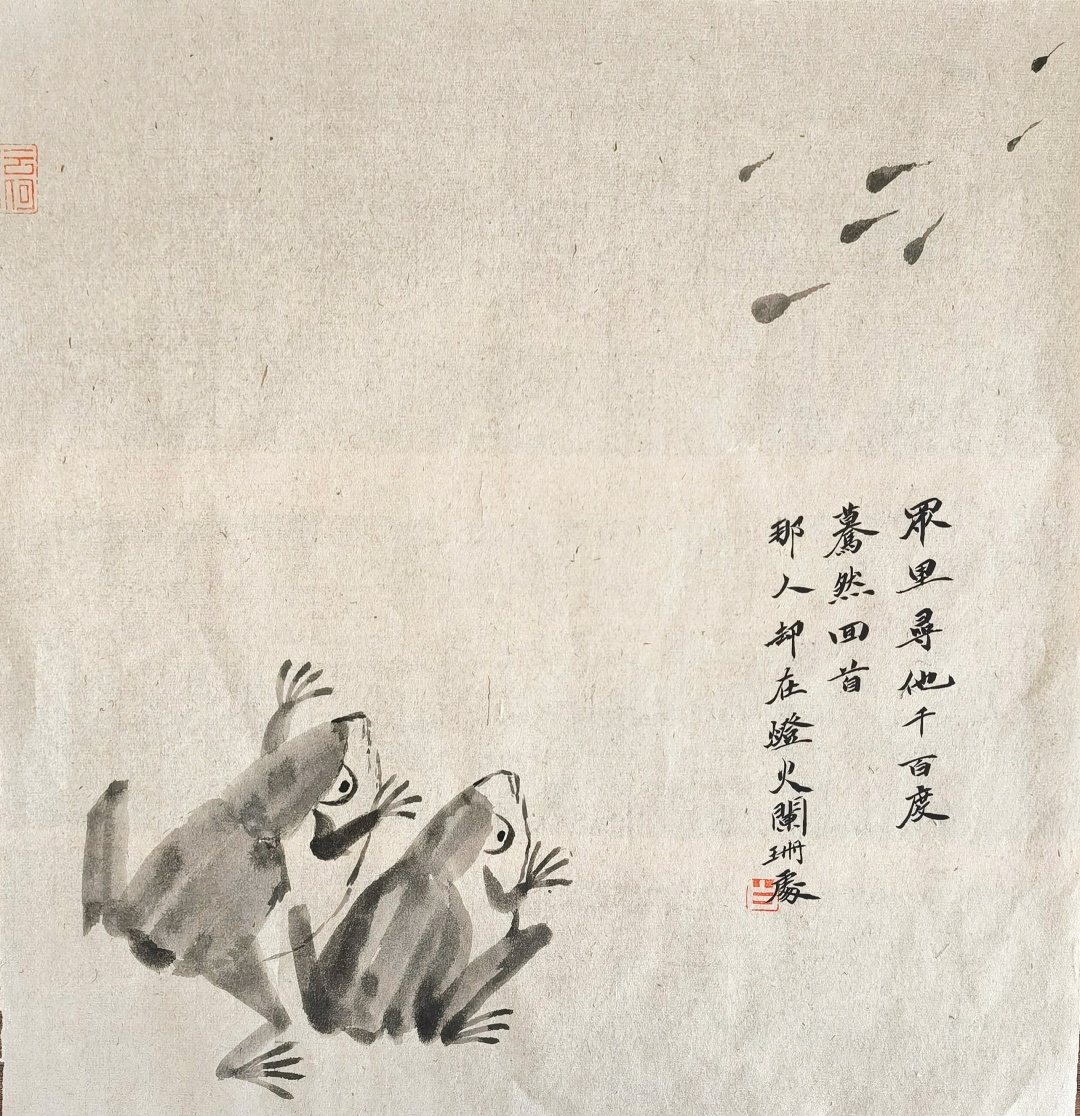 眾里尋他千百度
驀然回首
那人却在燈火闌珊處
云何